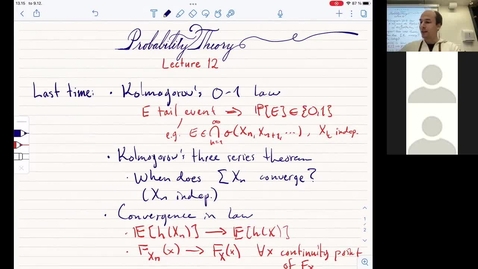 13.15 to 9.12.
87 %
Probability Theory
Lecture 12
Last time: • Kolmogorov's 0-1 law
E tail event ⇒ P[E] ∈ {0,1}
e.g. E ∈ ⋂_{n=1}^∞ σ(X_n, X_{n+1}, ...), X_k indep.
• Kolmogorov's three series theorem
• When does ∑ X_n converge?
(X_n indep.)
• Convergence in law
• E[h(X_n)] → E[h(X)]
• F_{X_n}(x) → F_X(x) ∀x continuity point
of F_X